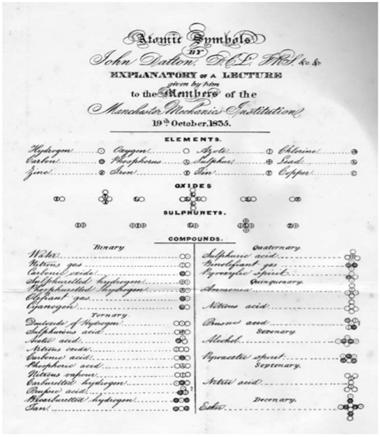 Atomic Symbols
BY
John Dalton, D.C.L. F.R.S. &c. &c.
EXPLANATORY OF A LECTURE
given by him
to the Members of the
Manchester Mechanics Institution
19th October, 1835.
ELEMENTS.
Hydrogen Oxygen Azote Chlorine
Carbon Phosphorus Sulphur Lead
Zinc Iron Tin Copper
OXIDES
SULPHURETS.
COMPOUNDS.
Binary
Water
Nitrous gas
Carbonic oxide
Sulphuretted hydrogen
Phosphuretted hydrogen
Olefiant gas
Cyanogen
Ternary
Deutoxide of Hydrogen
Sulphurous acid
Acetic acid
Nitrous oxide
Carbonic acid
Phosphoric acid
Nitrous vapour
Carburetted hydrogen
Prussic acid
Bicarburetted hydrogen
Tan
Quaternary
Sulphuric acid
Binolefiant gas
Pyroxylic spirit
Quinquenary
Ammonia
Nitrous acid
Prussic acid
Sevenary
Alcohol
Pyroacetic spirit
Septenary.
Nitric acid
Decenary
Ether